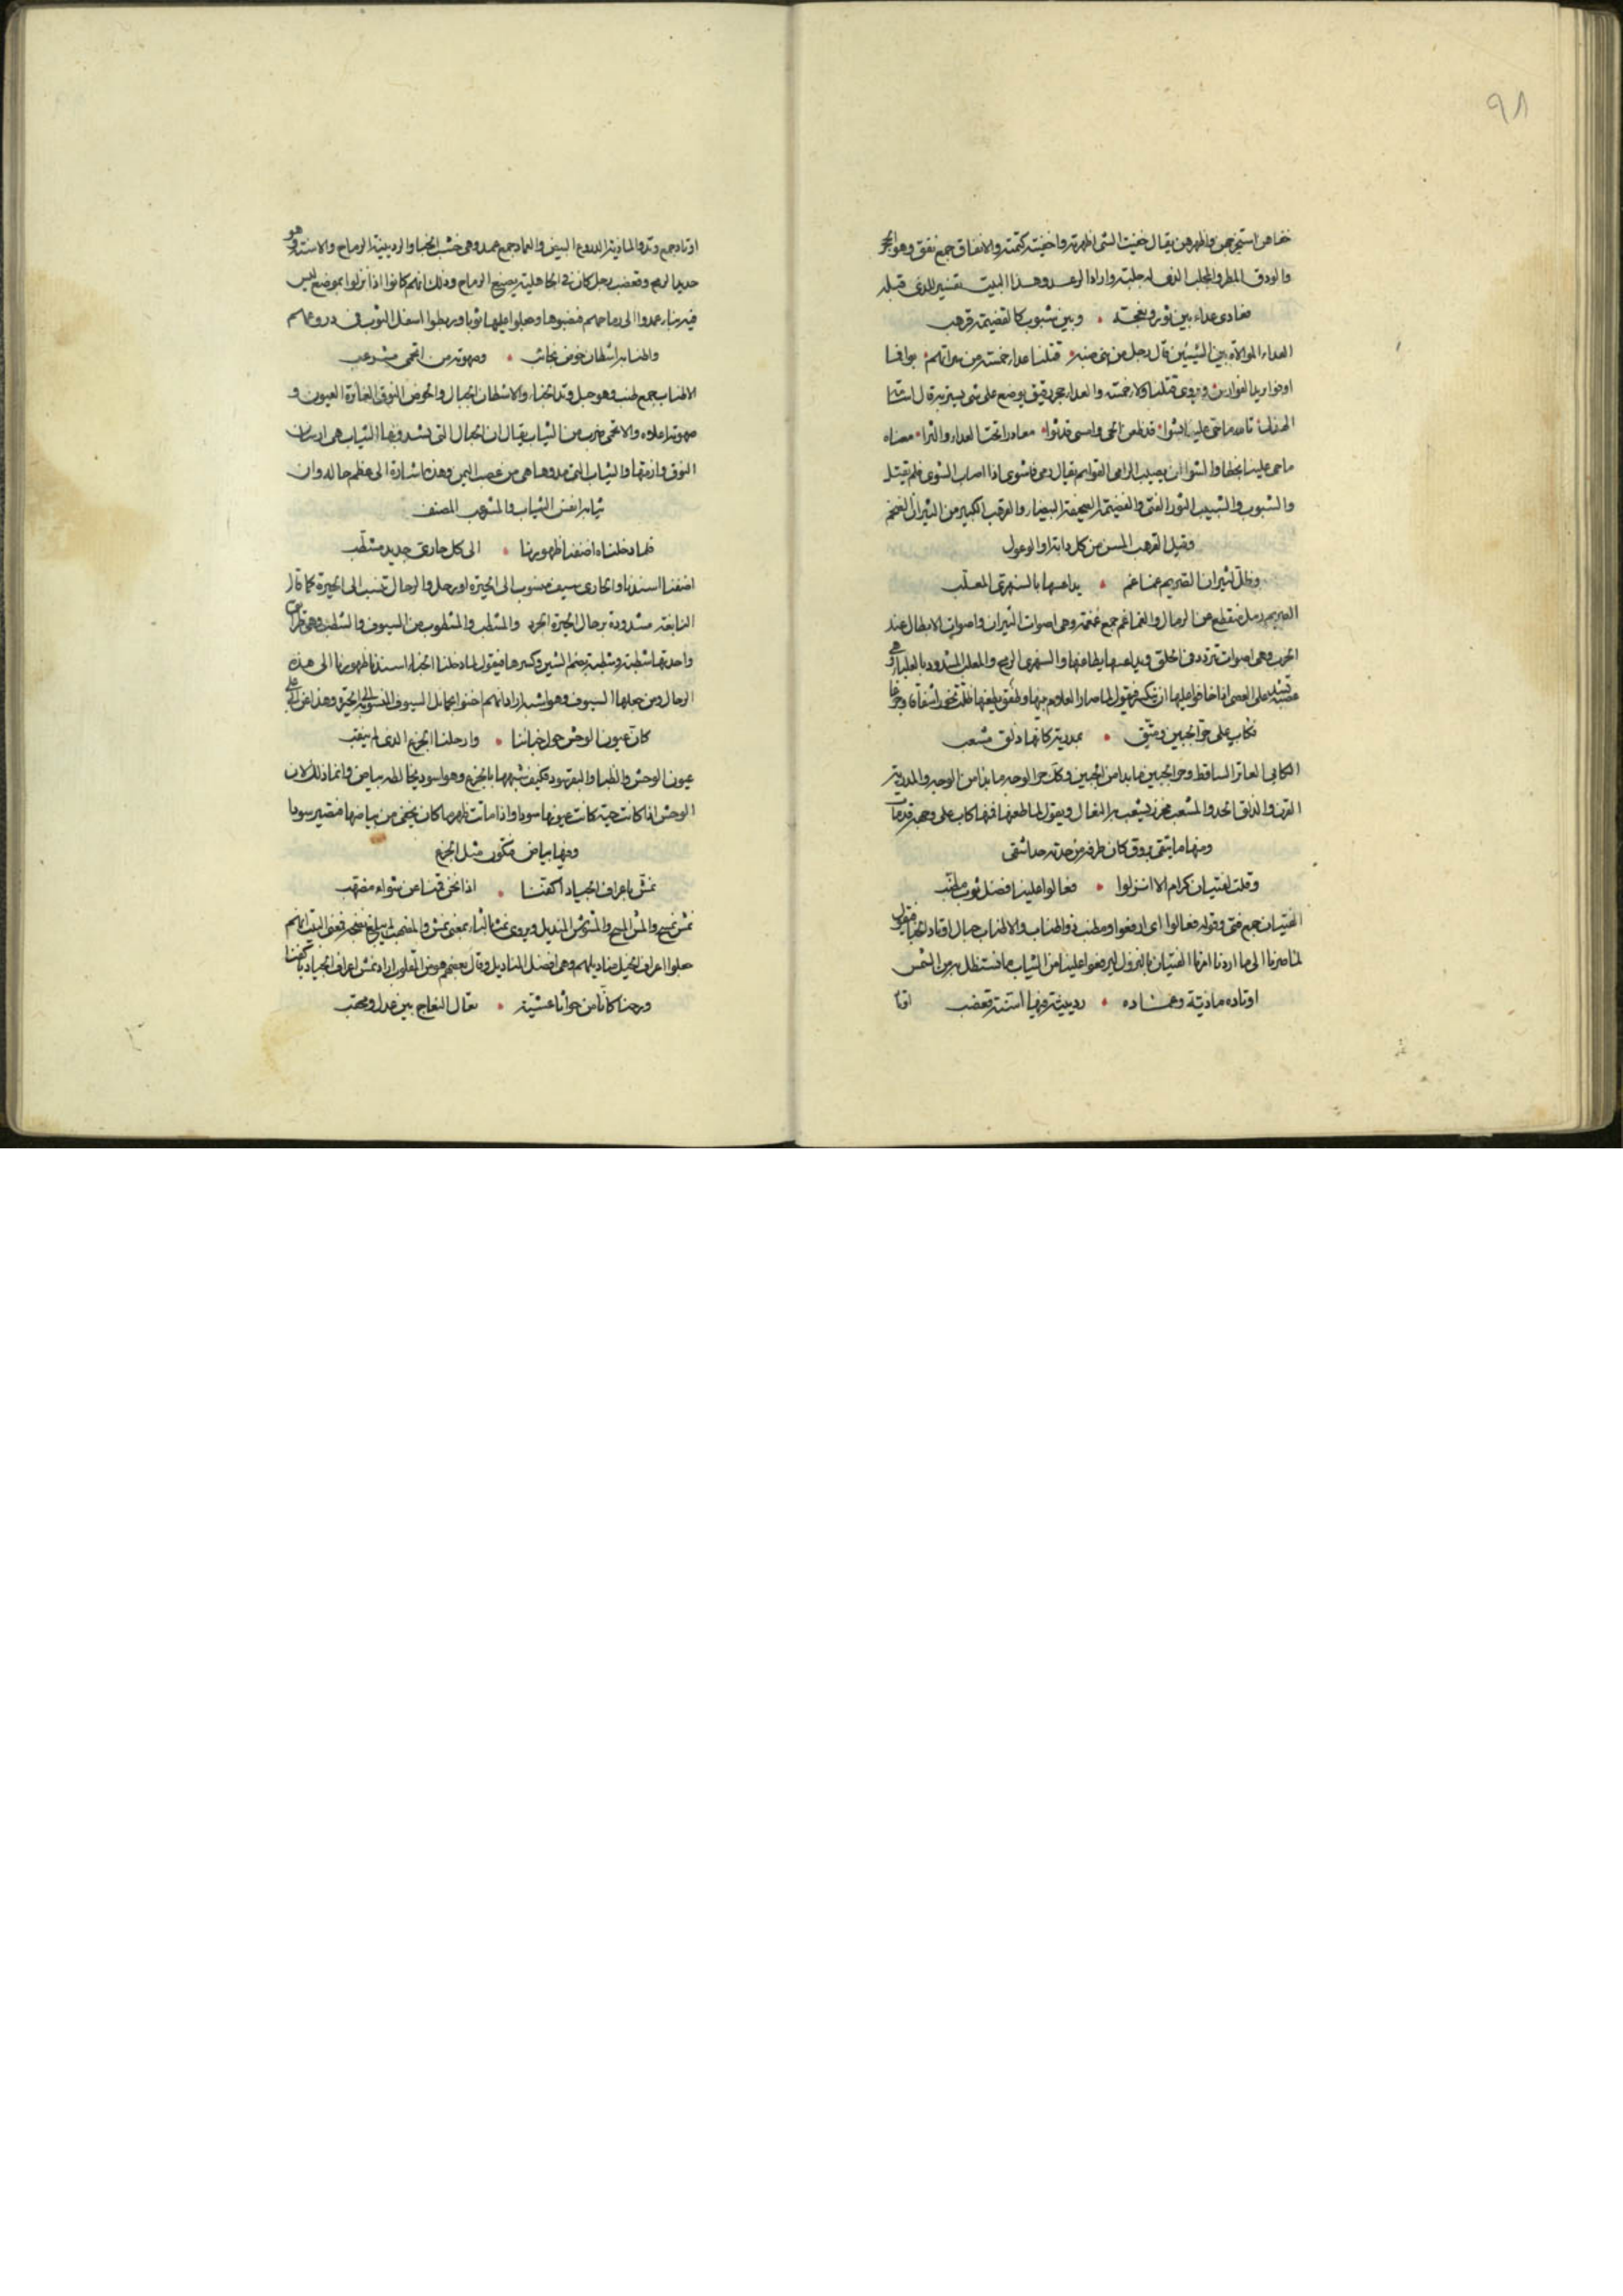 ٩٨
خفاهن استخرجهن واظهرهن يقال خفيت الشئ اظهرته واخفيته كتمته والانفاق جمع نفق وهو الجحر
والودق المطر والمجلب الذى له جلبة واراد الرعد وهذا البيت تفسير للذى قبله
فعادى عداء بين ثور ونعجة • وبين شبوب كالقضيمة قرهب
العداء الموالاة بين الشيئين قال رجل من بنى ضبة • قتلنا عداء خمسة من سراتهم •
ويروى قتلنا ولاء خمسة والعداء حجر رقيق يوضع على شئ يستر به قال
معناه
ما حمى علينا اخطأوا الشوا ان يصيب الرامى القوائم يقال رمى فاشوى اذا اصاب الشوى فلم يقتل
والشبوب والشبيب الثور الفتى والقضيمة الصحيفة البيضاء والقرهب الكبير من الثيران الضخم
وقيل القرهب المسن من كل دابة او الوعول
وظل لثيران الصريم غماغم • يداعسها بالسمهرى المعلب
الصريم رمل منقطع من الرمال والغماغم جمع غمغمة وهى اصوات الثيران واصوات الابطال عند
الحرب وهى اصوات تتردد فى الحلق ويداعسها يطاعنها والسمهرى الرمح والمعلب المشدود بالعلباء وهى
عصبة تشد على العصى اذا خافوا عليها ان تنكسر فيقول لما صار الغلام بينها وطفق يطعنها ظلت تخور اشفاقا وجزعا
فكاب على حر الجبين ومتق • بمدرية كانها ذلق مشعب
الكابى العاثر الساقط وحر الجبين ما بدا من الجبين وكذلك حر الوجه ما بدا من الوجه والمدرية
القرن والذلق الحد والمشعب مخرز يشعب به النعال ويقول لما طعنها فمنها كاب على وجهه قد مات
ومنها ما يتقى بروق كان طرفه من حدته حد اشفى
وقلت لفتيان كرام الا انزلوا • فعالوا علينا فضل ثوب مطنب
الفتيان جمع فتى وقوله فعالوا اى ارفعوا ومطنب ذو اطناب والاطناب حبال اوتاد الخباء فيقول
لما صرنا الى ما اردنا امرنا الفتيان بالنزول ليرفعوا علينا من الثياب ما نستظل به من الشمس
اوتاده ماذية وعماده • ردينية فيها اسنة قعضب
اوتا
اوتاد جمع وتد والماذية الدروع البيض والعماد جمع عمد وهى خشب الخبا والردينية الرماح والاسنة وهو
حديد الرمح وقعضب رجل كان فى الجاهلية يصنع الرماح وذلك انهم كانوا اذا نزلوا بموضع ليس
فيه بناء عمدوا الى رماحهم فنصبوها وجعلوا عليها ثوبا وربطوا اسفل الثوب فى دروعهم
واطنابه اشطان خوص نجائب • وصهوته من اتحمى مشرعب
الاطناب جمع طنب وهو حبل وتد الخباء والاشطان الحبال والخوص النوق الغائرة العيون و
صهوته اعلاه والاتحمى ضرب من الثياب يقال ان الحبال التى تشد فيها الثياب هى ارسان
النوق وازمتها والثياب التى مدوها هى من عصب اليمن وهذه اشارة الى عظم حاله وان
ثيابه انفس الثياب والمشرعب المصنف
فلما دخلناه اضفنا ظهورنا • الى كل حارى جديد مشطب
اضفنا اسندنا والحارى سيف منسوب الى الحيرة او رحل والرحال تنسب الى الحيرة كما قال
النابغة مشدودة برحال الحيرة الجرد والمشطب والمشطوب من السيوف والشطب وهى طرائق
واحدتها شطبة وشطبة بضم الشين وكسرها فيقول لما دخلنا الخباء اسندنا ظهورنا الى هذه
الرحال ومن جعلها السيوف وهو اشبه اراد انهم احتبوا بحمايل السيوف المنسوبة الى الحيرة
كان عيون الوحش حول خبائنا • وارحلنا الجزع الذى لم يثقب
عيون الوحش والظباء والبقر سود فكيف شبهها بالجزع وهو اسود يخالطه بياض وانما ذلك لان
الوحش اذا كانت حية كانت عيونها سودا واذا ماتت ظهر ما كان يخفى من بياضها فتصير سودا
وفيها بياض فتكون مثل الجزع
نمش باعراف الجياد اكفنا • اذا نحن قمنا عن شواء مضهب
نمش نمسح والمش المسح والمشوش المنديل ويروى نمث بالثاء بمعنى نمش والمضهب الذى لم يبلغ نضجه فمعنى البيت انهم
جعلوا اعراف الخيل مناديلهم وهى افضل المناديل وقال بعضهم هو من المقلوب اراد نمش اعراف الجياد باكفنا
ورحنا كانا من جواثا عشية • نعالى النعاج بين عدل ومحقب